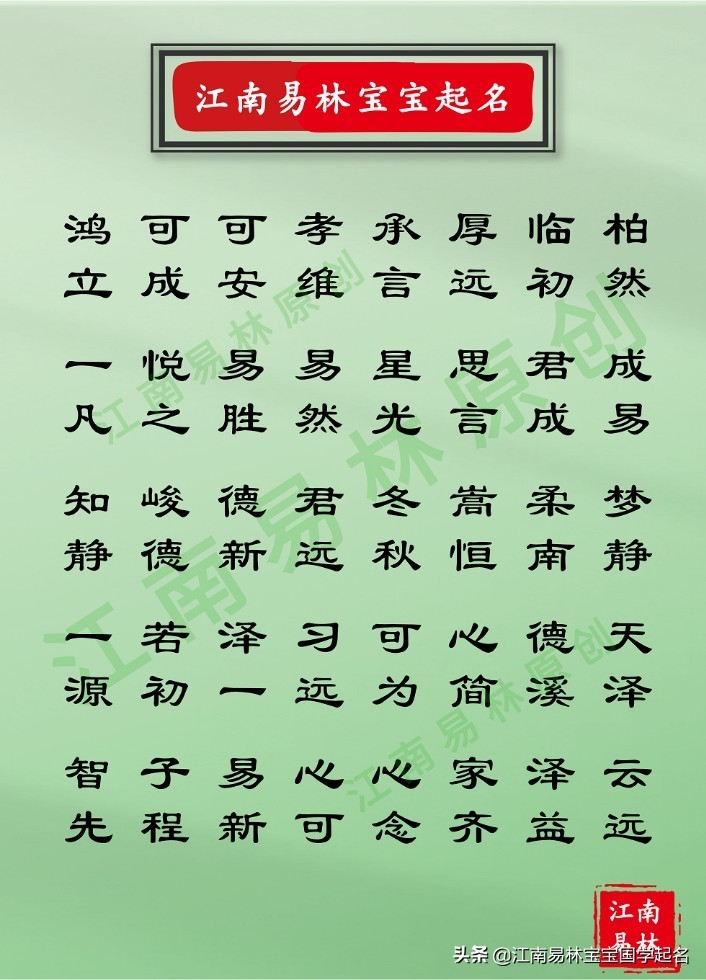 江南易林宝宝起名
鸿 可 可 孝 承 厚 临 柏
立 成 安 维 言 远 初 然
一 悦 易 易 星 思 君 成
凡 之 胜 然 光 言 成 易
知 峻 德 君 冬 嵩 柔 梦
静 德 新 远 秋 恒 南 静
一 若 泽 习 可 心 德 天
源 初 一 远 为 简 溪 泽
智 子 易 心 心 家 泽 云
先 程 新 可 念 齐 益 远
江南易林原创
江南易林原创
江南易林原创
江南
易林
头条 @江南易林宝宝国学起名